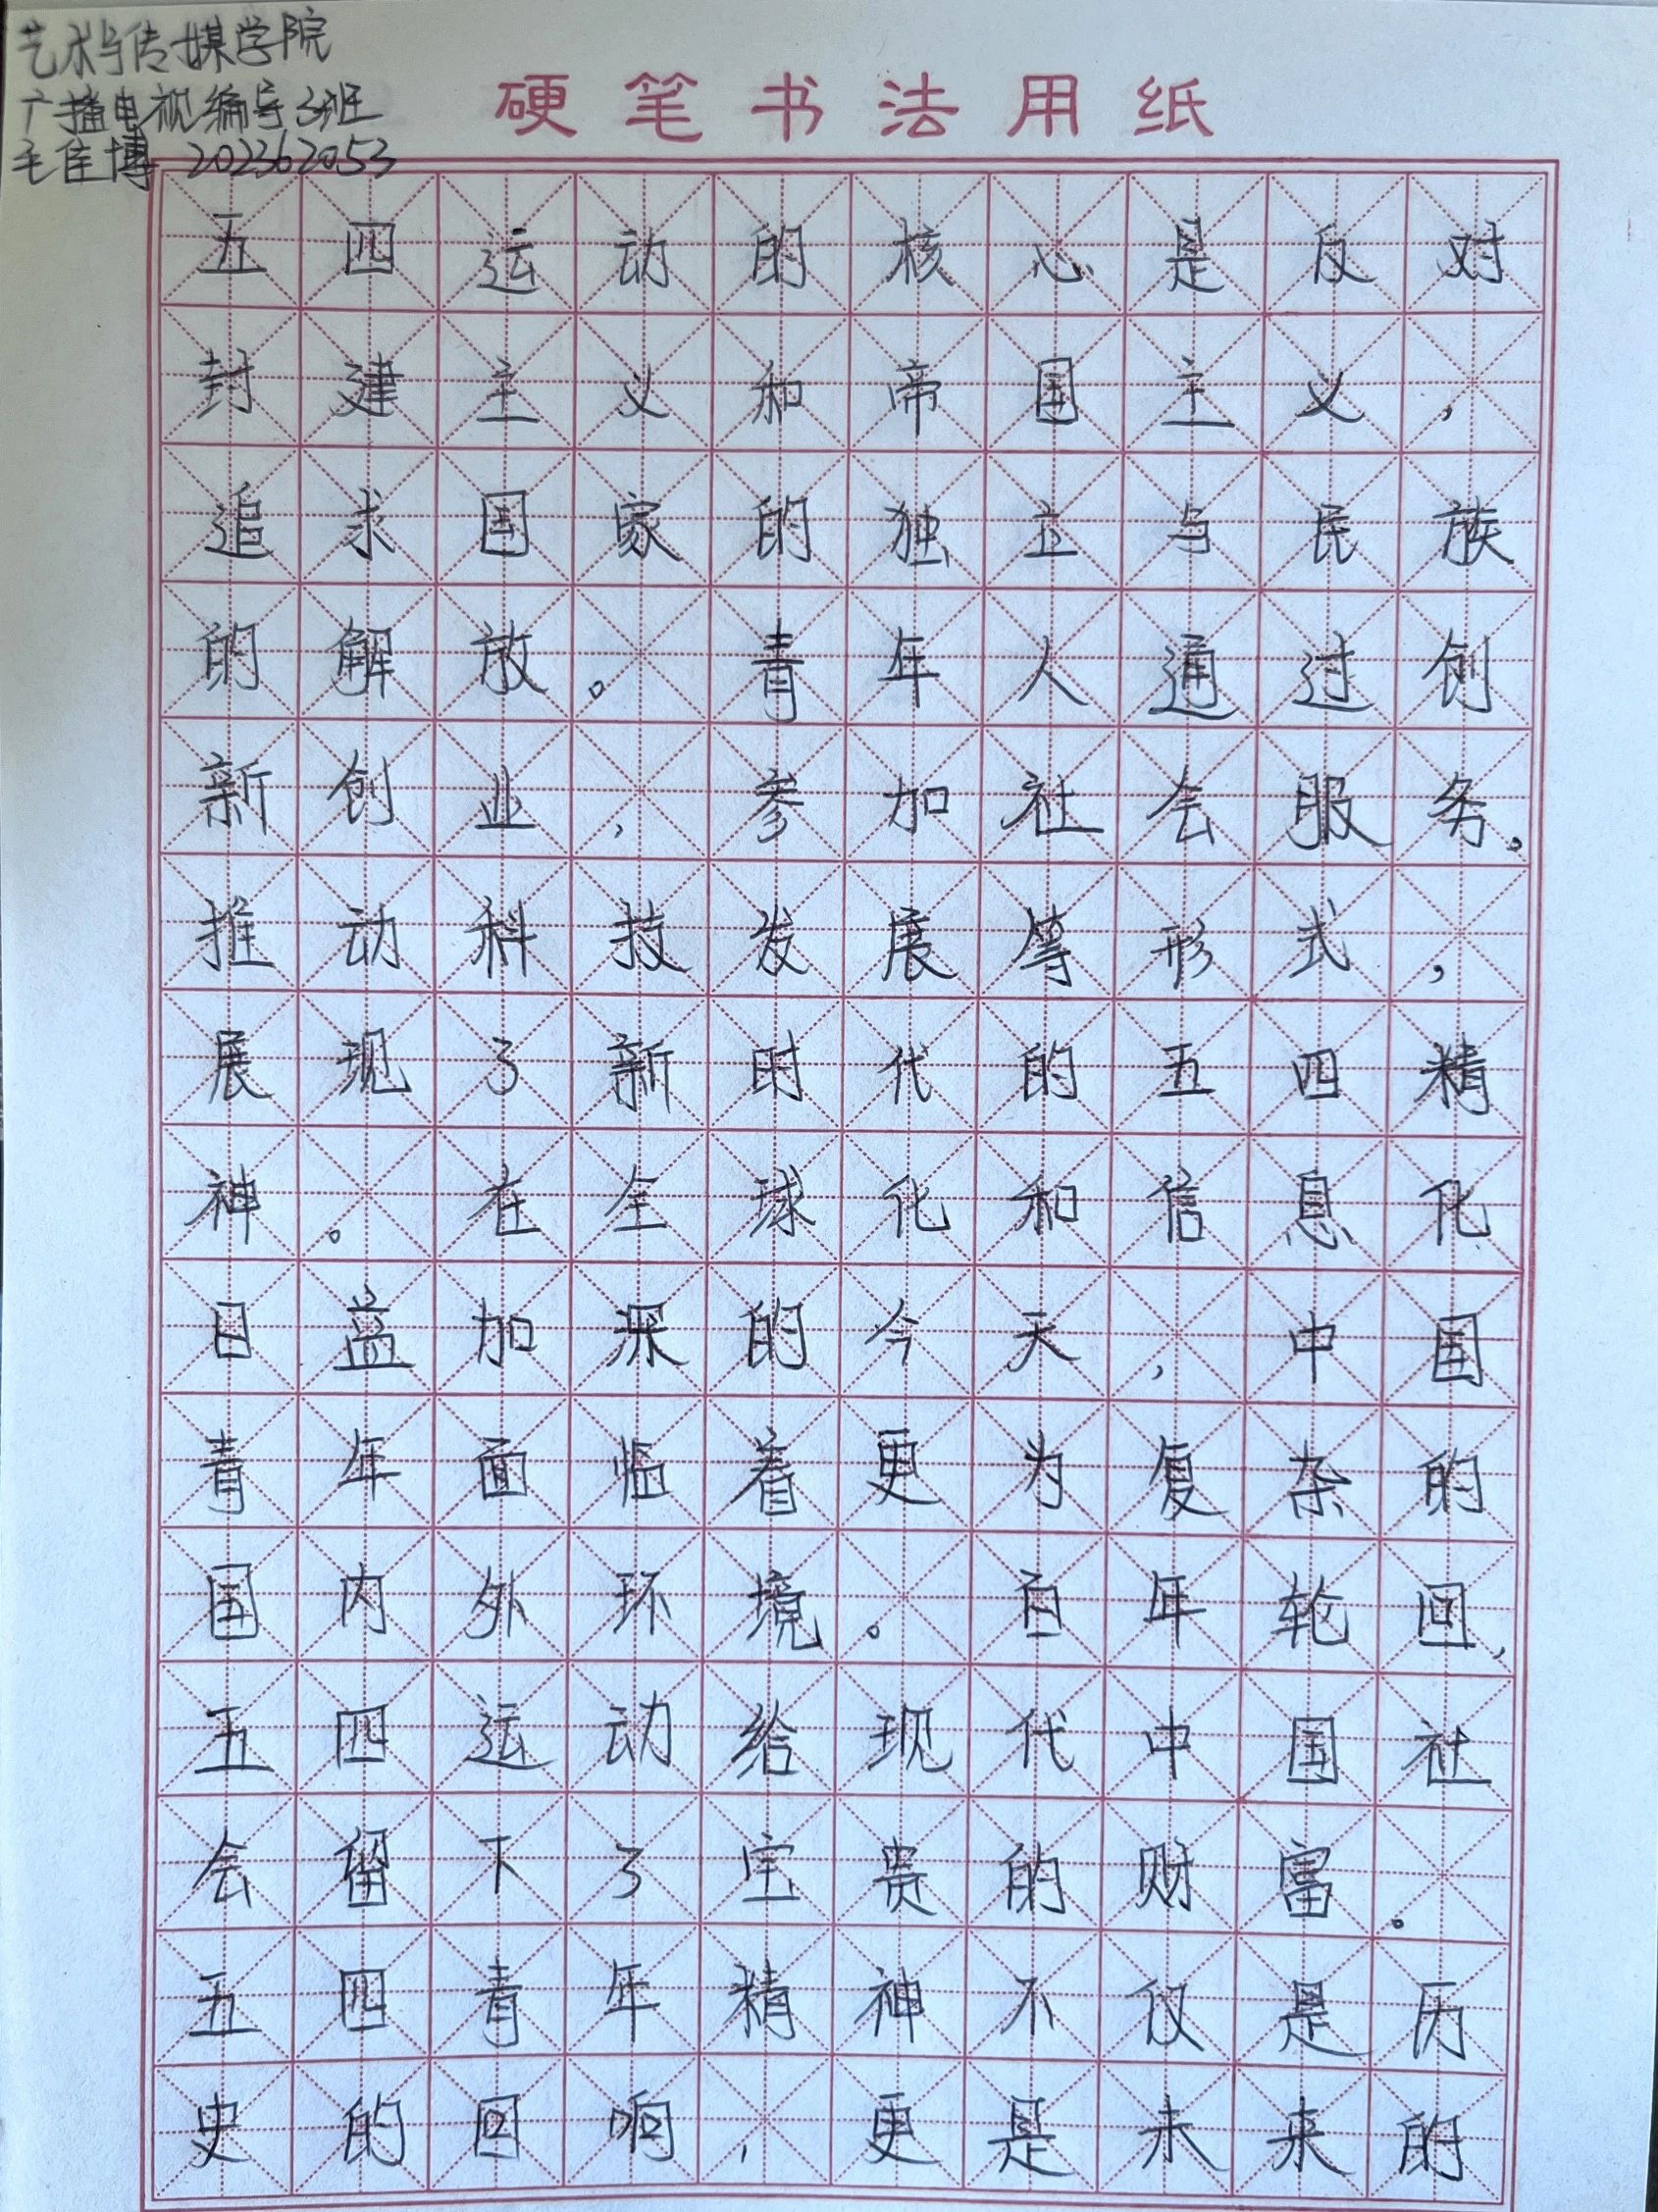 艺术与传媒学院
广播电视编导3班
毛佳博 202362053
硬笔书法用纸
五四运动的核心是反对
封建主义和帝国主义，
追求国家的独立与民族
的解放。青年人通过创
新创业，参加社会服务。
推动科技发展等形式，
展现了新时代的五四精
神。在全球化和信息化
日益加深的今天，中国
青年面临着更为复杂的
国内外环境。百年轮回，
五四运动给现代中国社
会留下了宝贵的财富。
五四青年精神不仅是历
史的回响，更是未来的